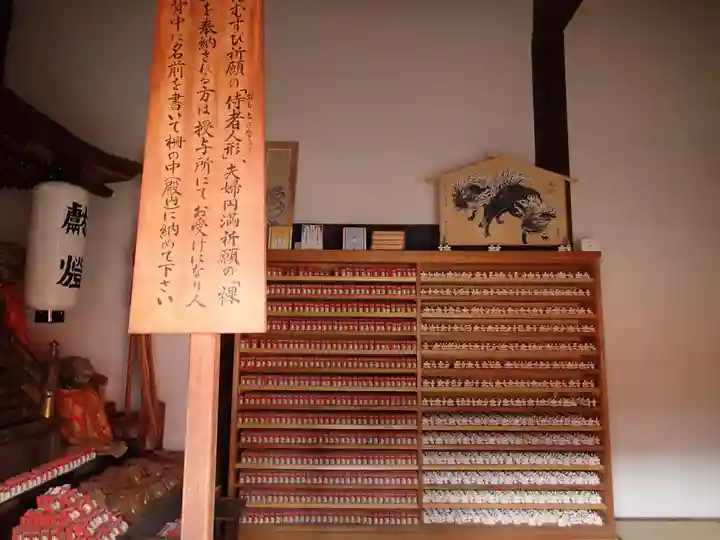 むすび祈願の「侍者人形」、夫婦円満祈願の「裸
を奉納される方は授与所にてお受けになり人
背中に名前を書いて柵の中(殿内)に納めて下さい
献燈